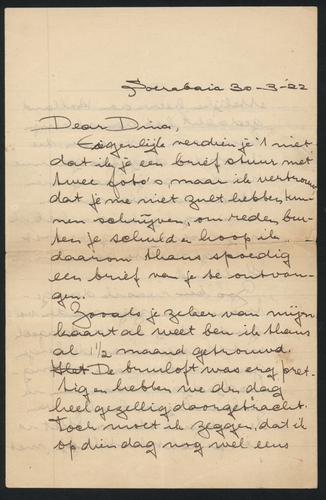 Soerabaia 30-3-'22
Dear Dina,
Eigenlijk verdien je 't niet
dat ik je een brief stuur met
twee foto's, maar ik vertrouw
dat je me niet zult hebben kun-
nen schrijven, om reden bui-
ten je schuld en hoop ik
daarom thans spoedig
een brief van je te ontvan-
gen.
Zooals je zeker van mijn
kaart al weet ben ik thans
al 1½ maand getrouwd.
De bruiloft was erg pret-
tig en hebben we dn dag
heel gezellig doorgebracht.
Toch moet ik zeggen, dat ik
op dien dag nog wel eens